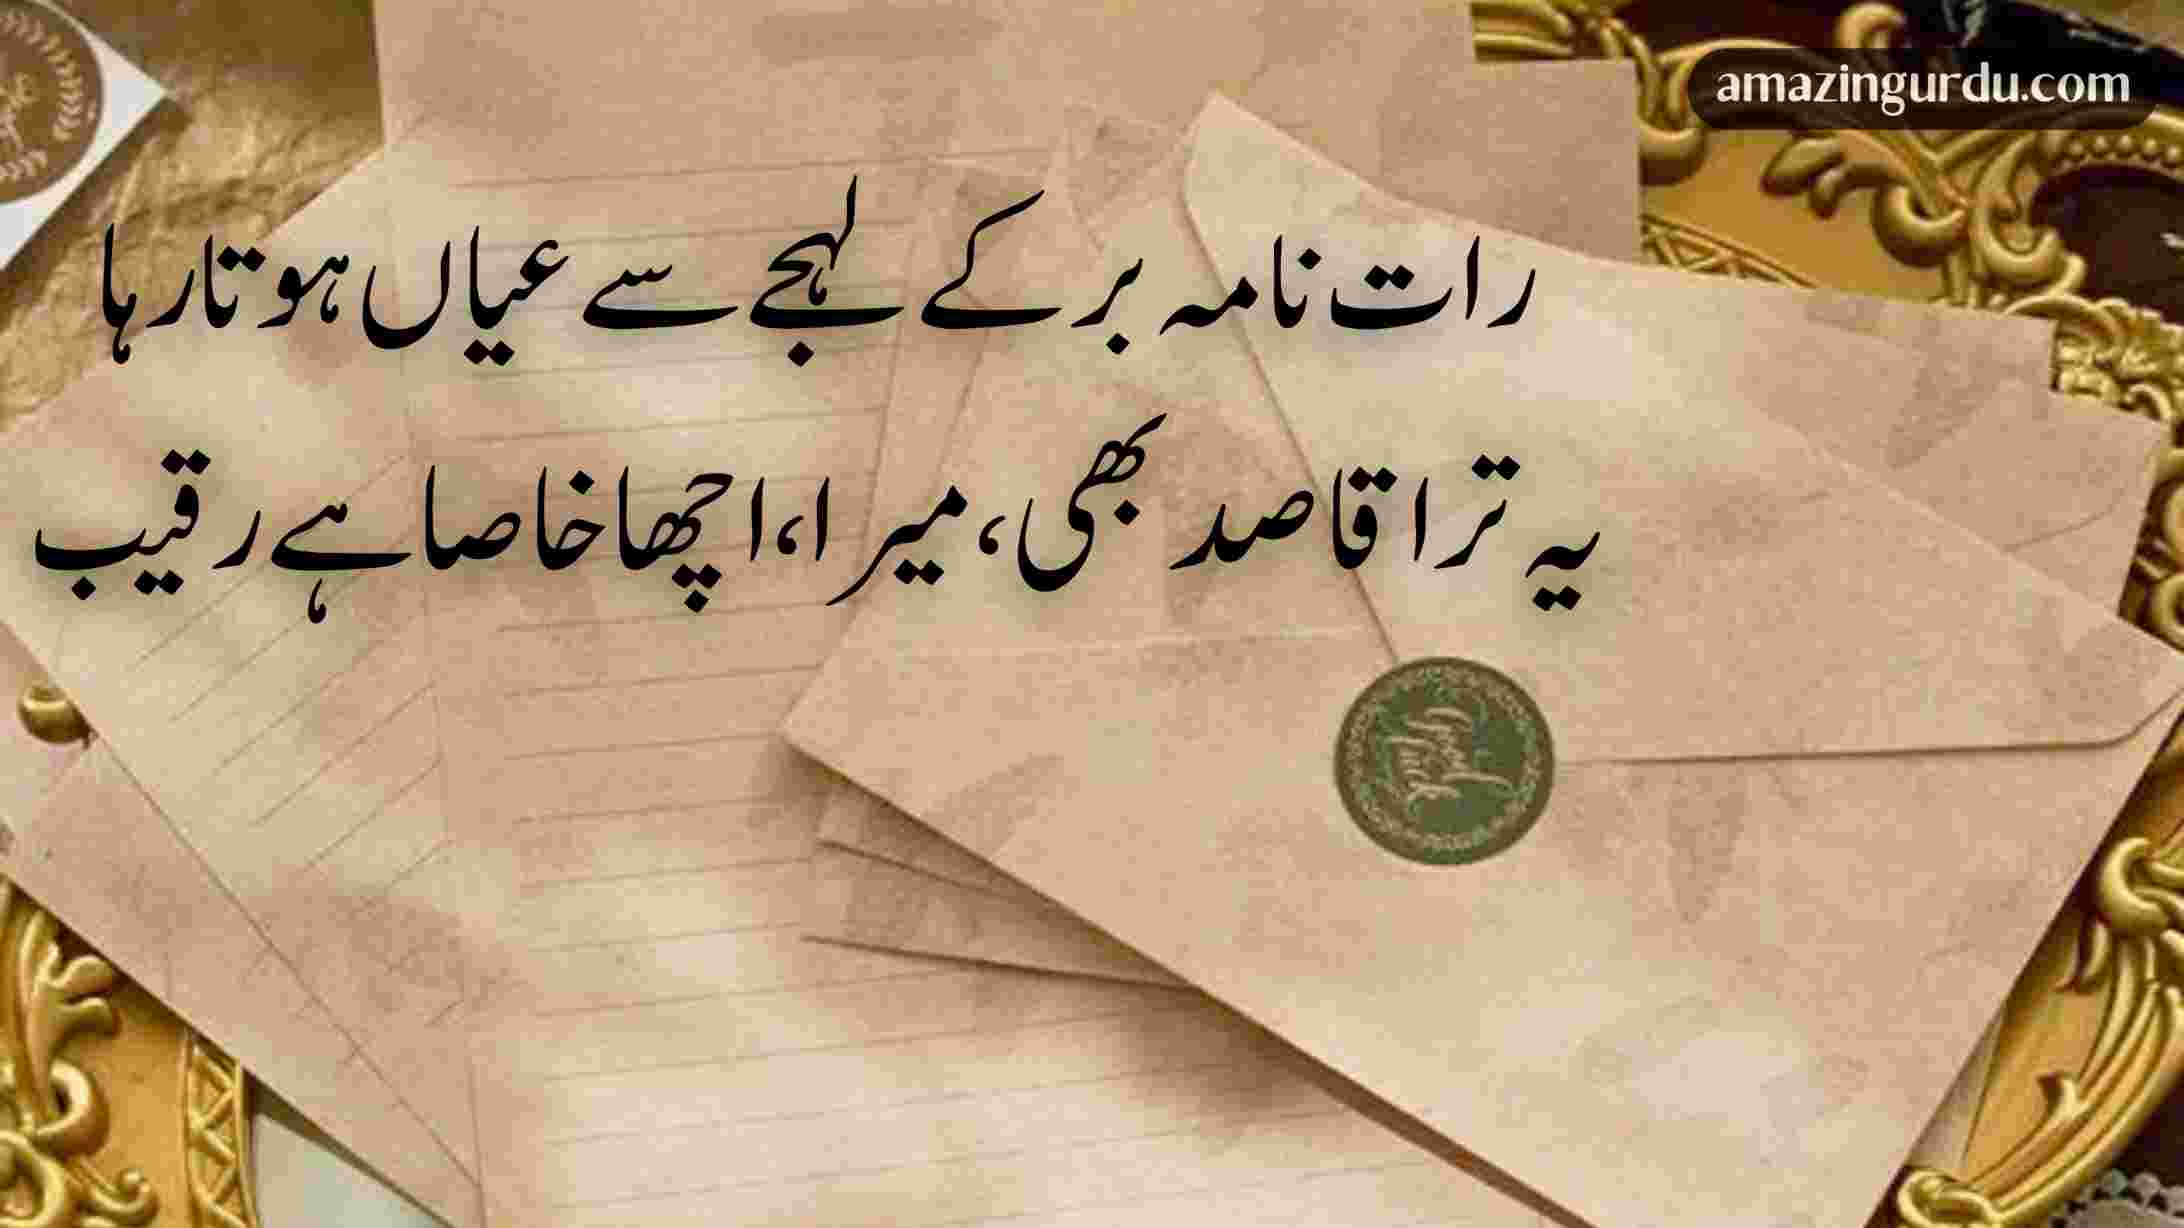 amazingurdu.com
رات نامہ بر کے لہجے سے عیاں ہوتا رہا
یہ ترا قاصد بھی، میرا، اچھا خاصا ہے رقیب
Good Luck